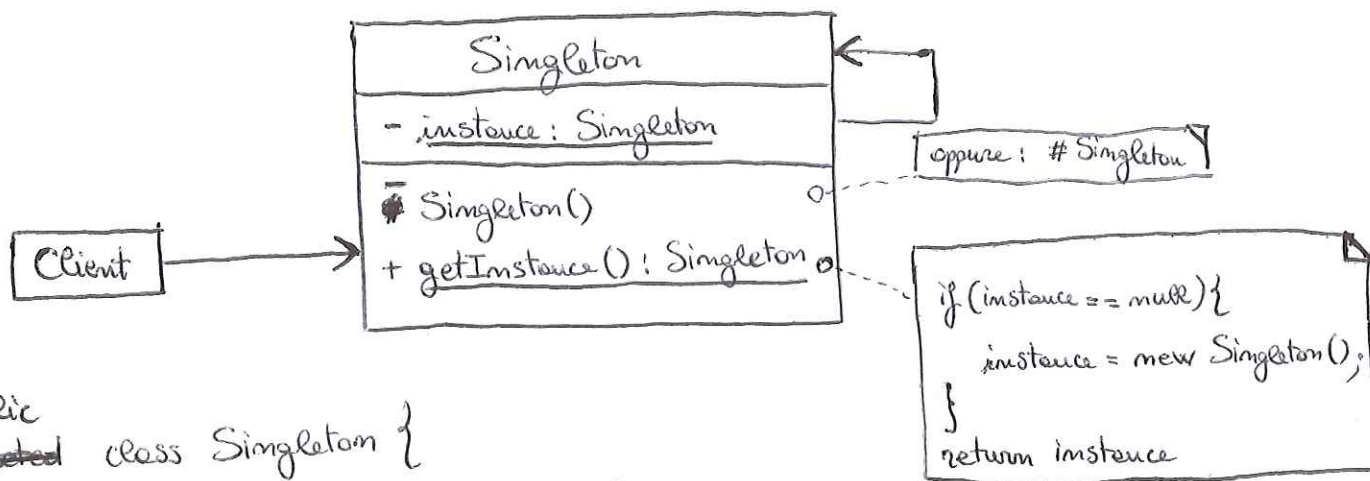 Singleton
- instance: Singleton
oppure: # Singleton
- Singleton()
+ getInstance(): Singleton
Client
if (instance == null) {
instance = new Singleton();
}
return instance
class Singleton {